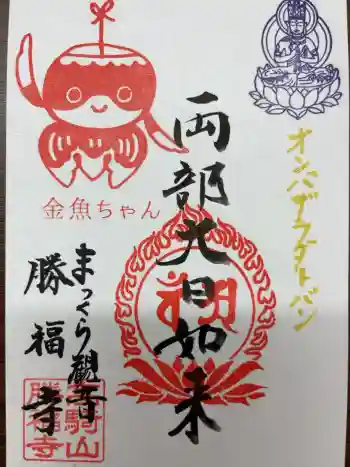 オンバザラダトバン
両部大日如来
金魚ちゃん
まっくら観音
勝福寺